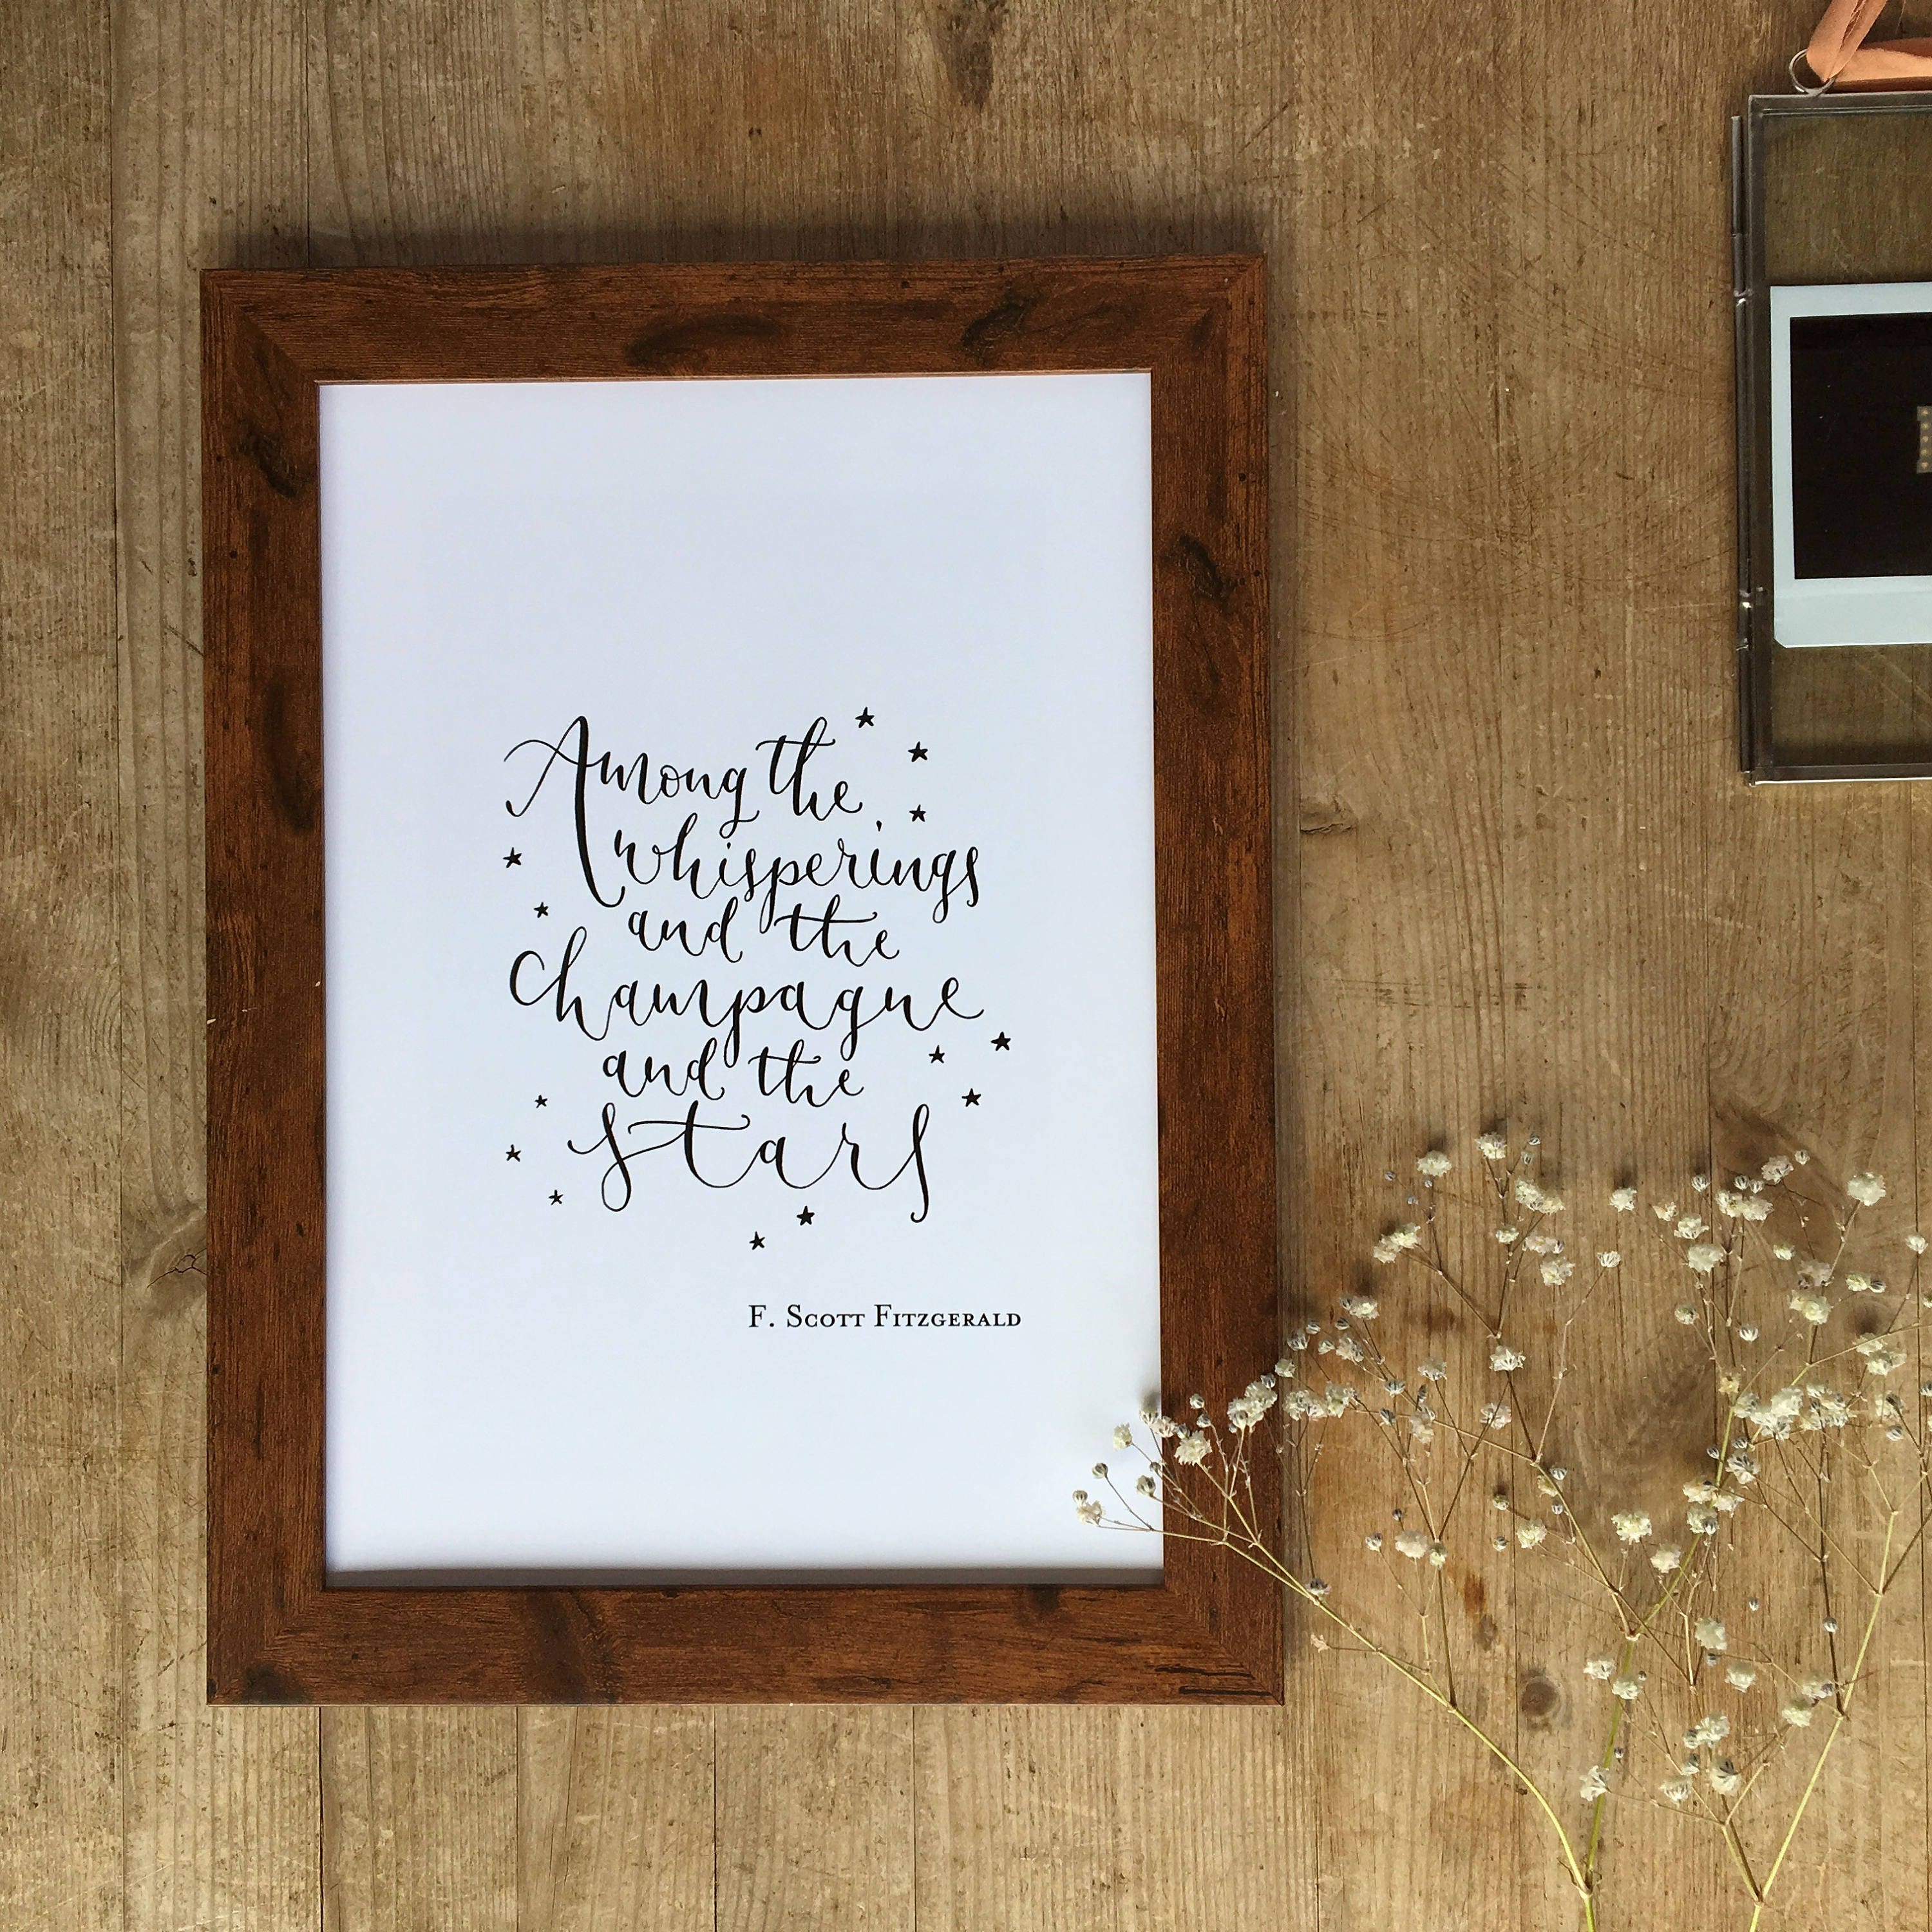 Among the
whisperings
and the
Champagne
and the
stars
F. Scott Fitzgerald